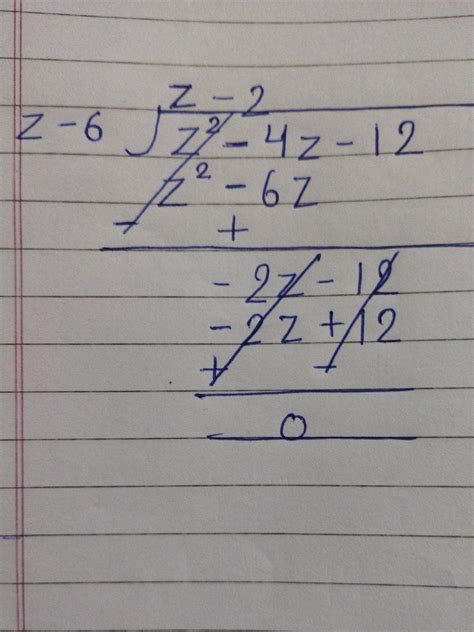 z - 2
z - 6 z² - 4z - 12
z² - 6z
- +
- 2z - 12
- 2z + 12
+ -
0